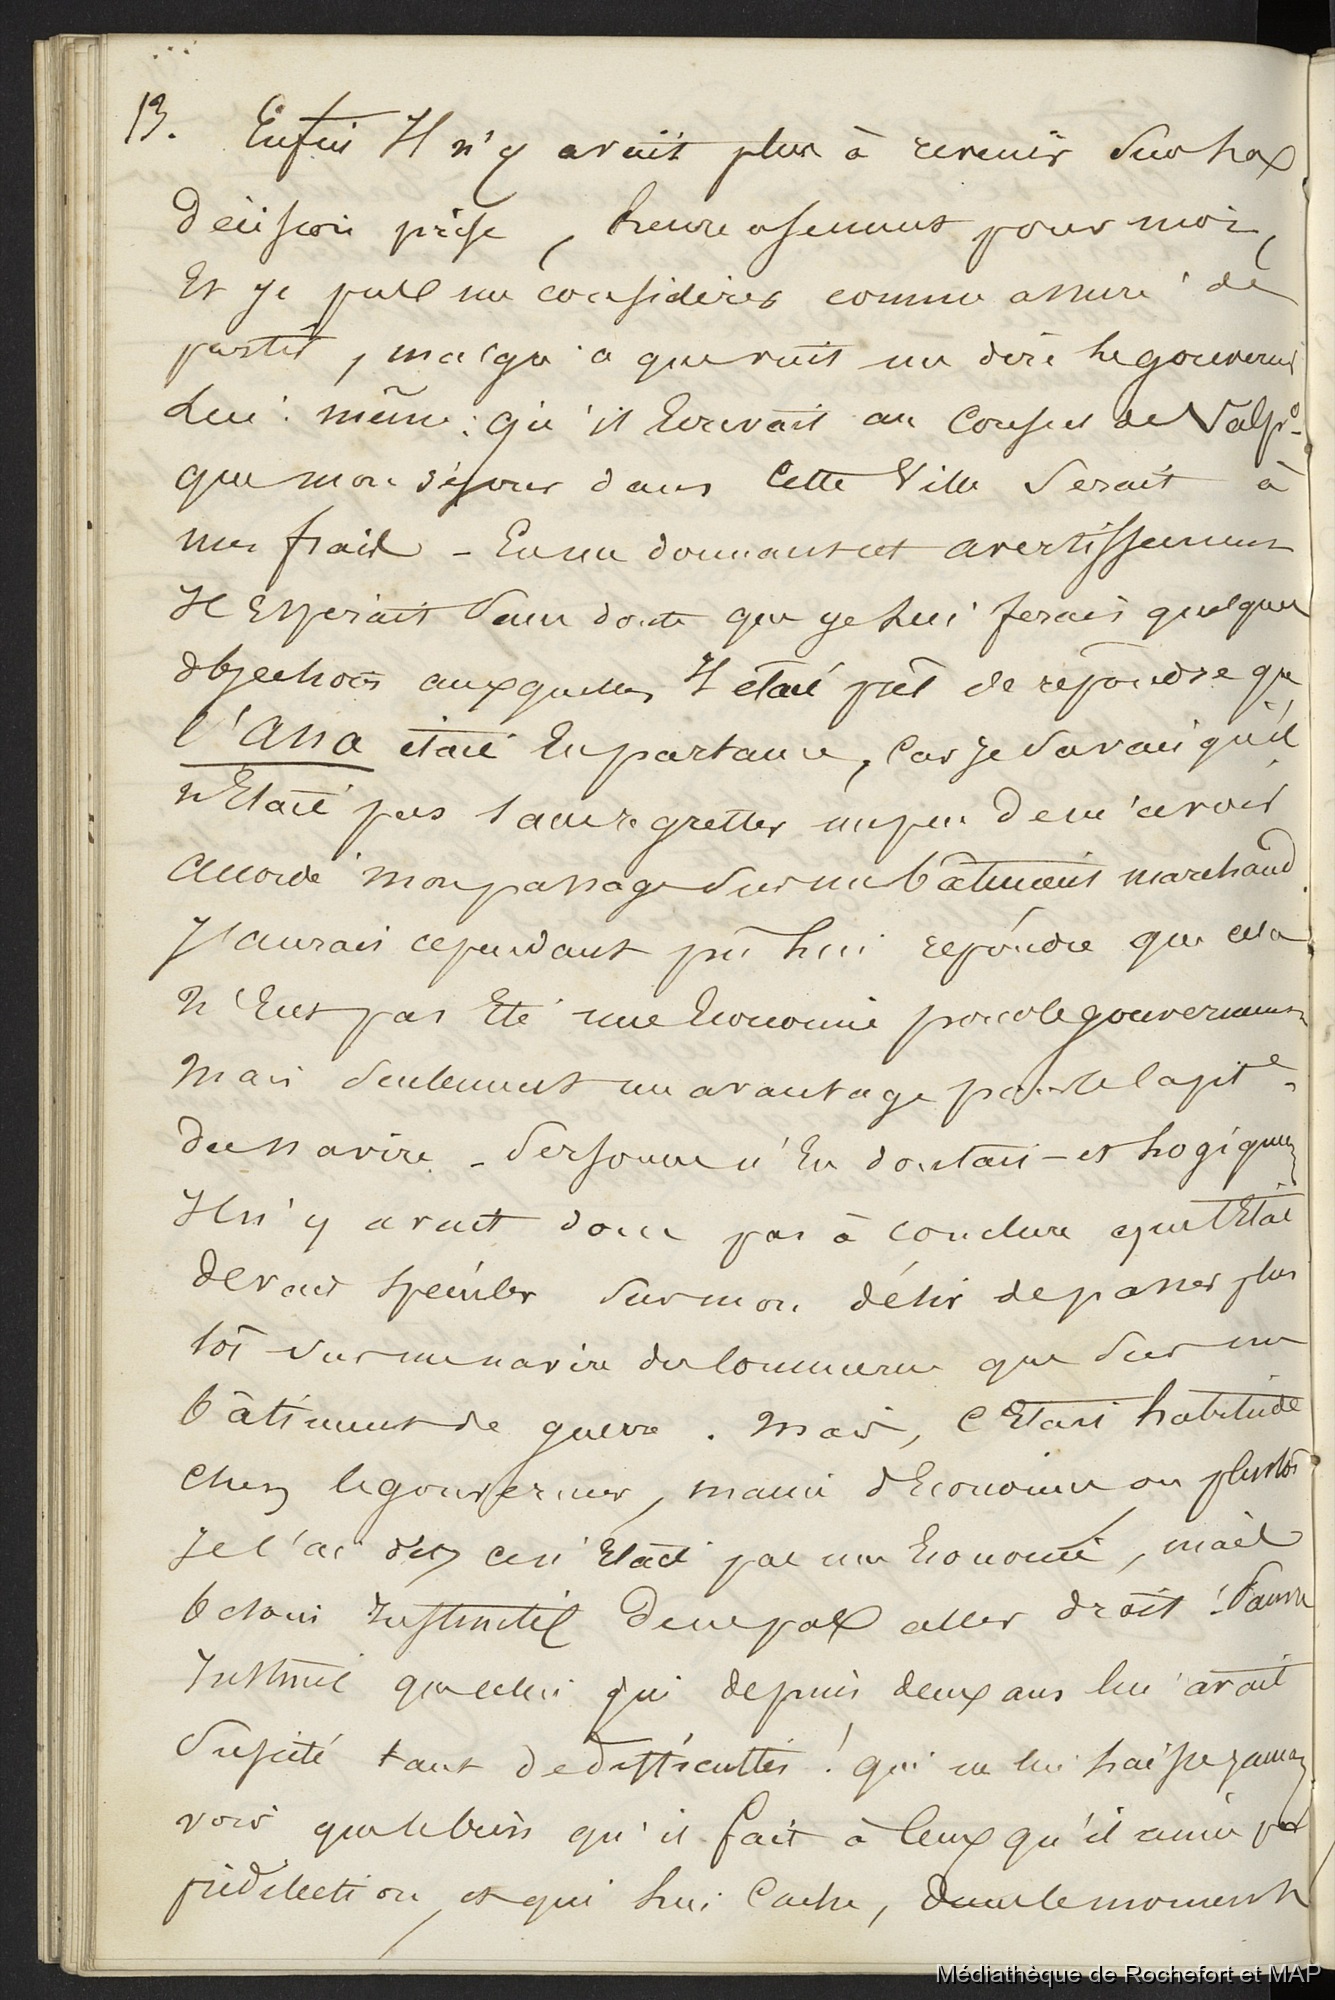 13. Enfin Il n'y avait plus à revenir sur la
décision prise, heureusement pour moi,
Et je puis me considérer comme assuré de
partir, malgré a que vint me dire le gouverneur
Lui-même: qu'il Ecrivait au Consul de Valpo.
que mon séjour dans Cette Ville Serait à
mes frais - En me donnant cet avertissement
Il Espérait Sans doute que je lui ferais quelques
objections auxquelles Il était prêt de répondre que
l'Assa était En partance, Car je Savais qu'il
n'Etait pas Sans regretter un peu De m'avoir
accordé mon passage Sur un bâtiment marchand.
J'aurais cependant pû lui répondre que cela
n'Eut pas Eté une Economie pour le gouvernement
Mais Seulement un avantage pour le Capite.
du navire - Personne n'En doutait - et logiquemt
Il n'y avait donc pas à conclure que l'Etat
devait Spéculer Sur mon désir de passer plus
tôt Sur un navire du Commerce que Sur un
bâtiment de guerre. Mais, C'Etait habitude
Chez le gouverneur, manie d'Economie ou plustôt
Je l'ai dit, ce n'Etait pas une Economie, mais
besoin Instinctif De ne pas aller droit! Pauvre
Instinct que celui qui depuis deux ans lui avait
Suscité tant de difficultés! qui ne lui laisse jamais
voir que le bien qu'il fait à Ceux qu'il aime par
prédilection, et qui lui Cache, dans le moment